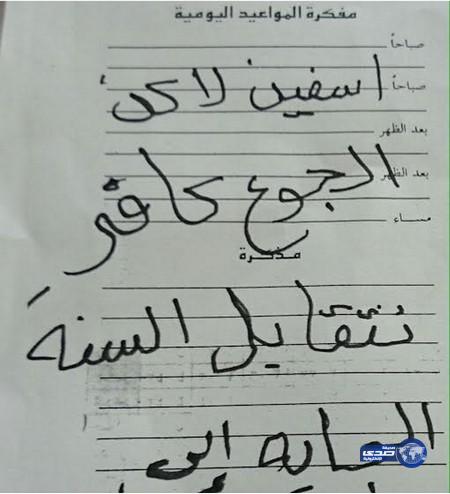 مفكرة المواعيد اليومية
صباحاً
صباحاً
اسفين لاكن
بعد الظهر
بعد الظهر
الجوع كافر
مساء
مذكرة
نتقابل السنة
الجايه إن
صحيفة صدى الإلكترونية